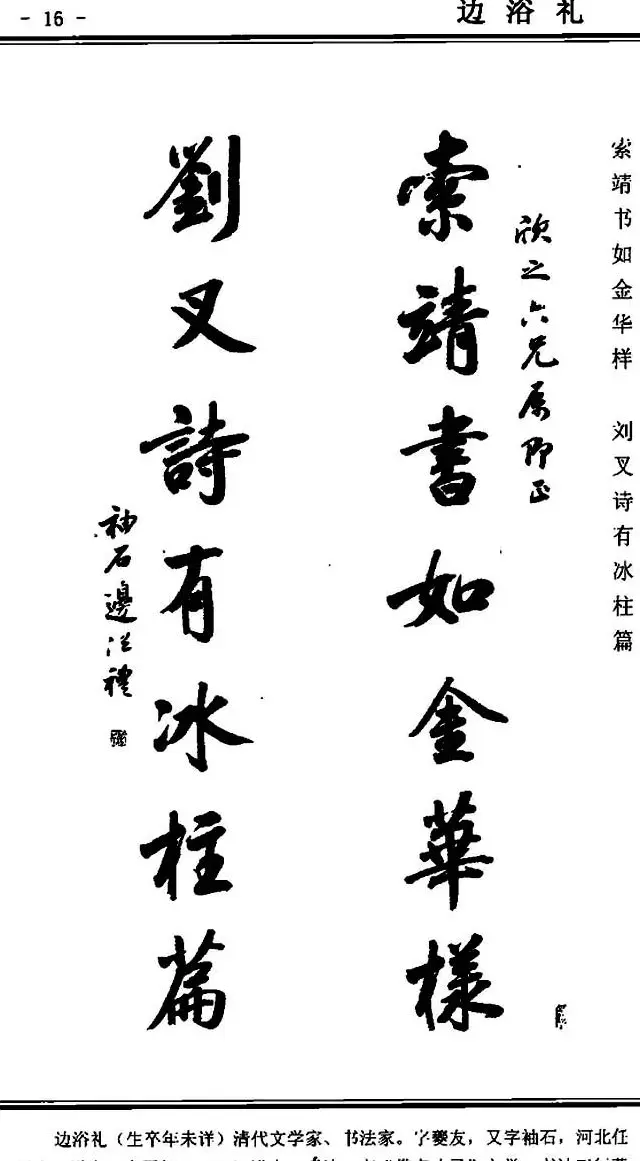 - 16 -
边浴礼
索靖书如金华样 刘叉诗有冰柱篇
欣之六兄属即正
索靖書如金華樣
劉叉詩有冰柱篇
袖石邊浴禮
边浴礼（生卒年未详）清代文学家、书法家。字夔友，又字袖石，河北任